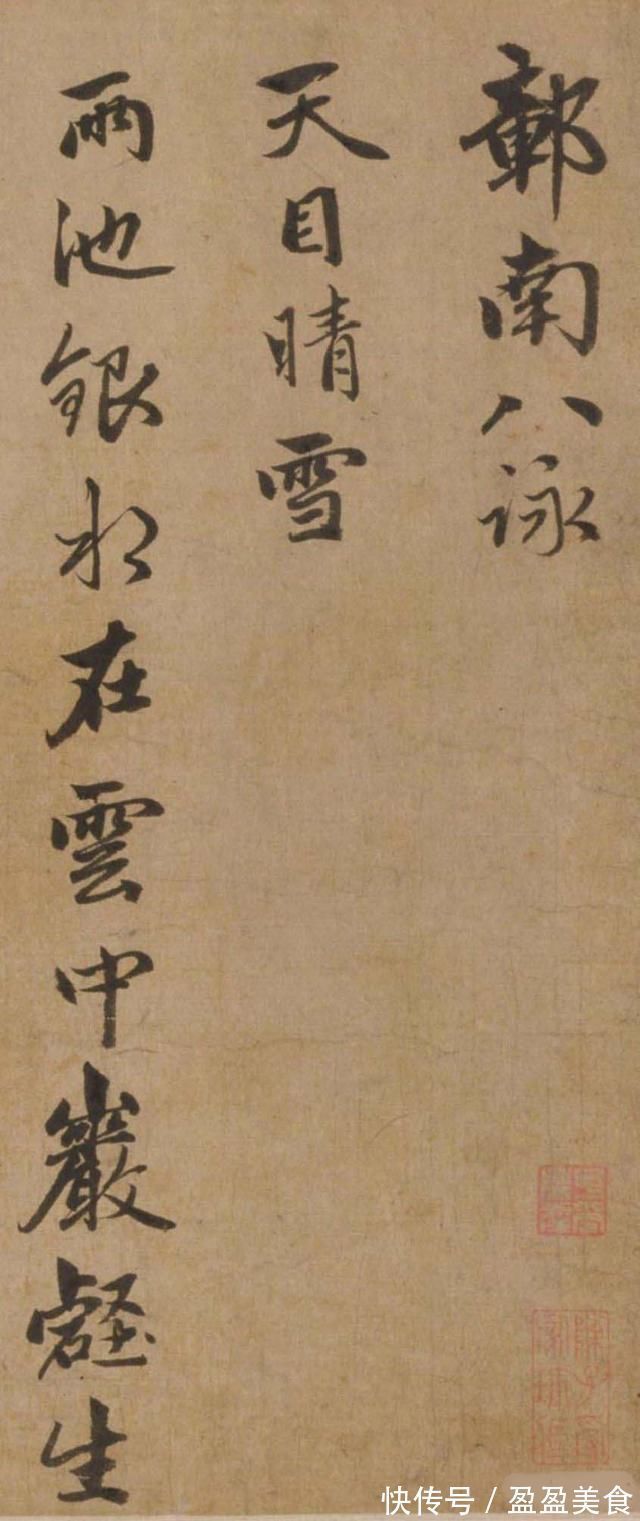 鄣南八詠
天目晴雪
兩池銀水在雲中巖壑生
快传号／盈盈美食